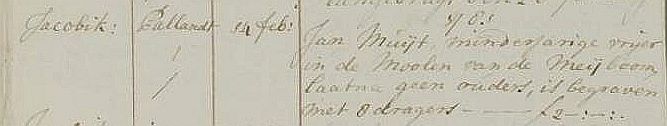 Jacobik: Pallandt 14 feb:
Jan Muijt, minderjarige vrijer
in de Moolen van de Meijboom
laatna geen ouders, is begraven
met 8 dragers — — — f2-:-:-